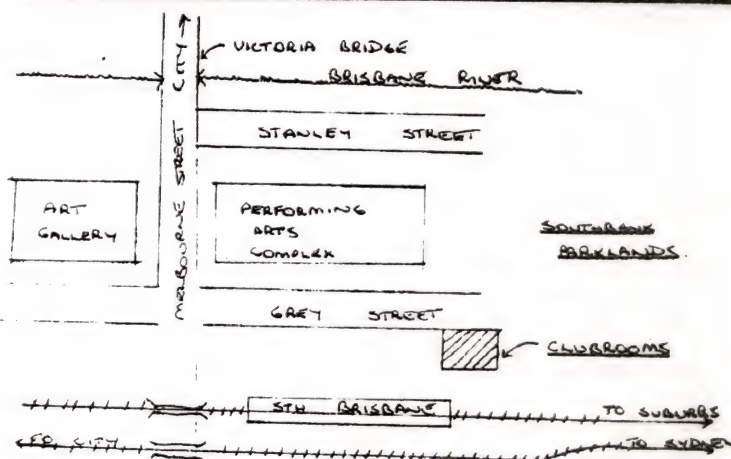 VICTORIA BRIDGE
BRISBANE RIVER
MELBOURNE STREET CITY
STANLEY STREET
ART
GALLERY
PERFORMING
ARTS
COMPLEX
SOUTHBANK
PARKLANDS.
GREY STREET
CLUBROOMS
STH BRISBANE
TO SUBURBS
CITY
TO SYDNEY